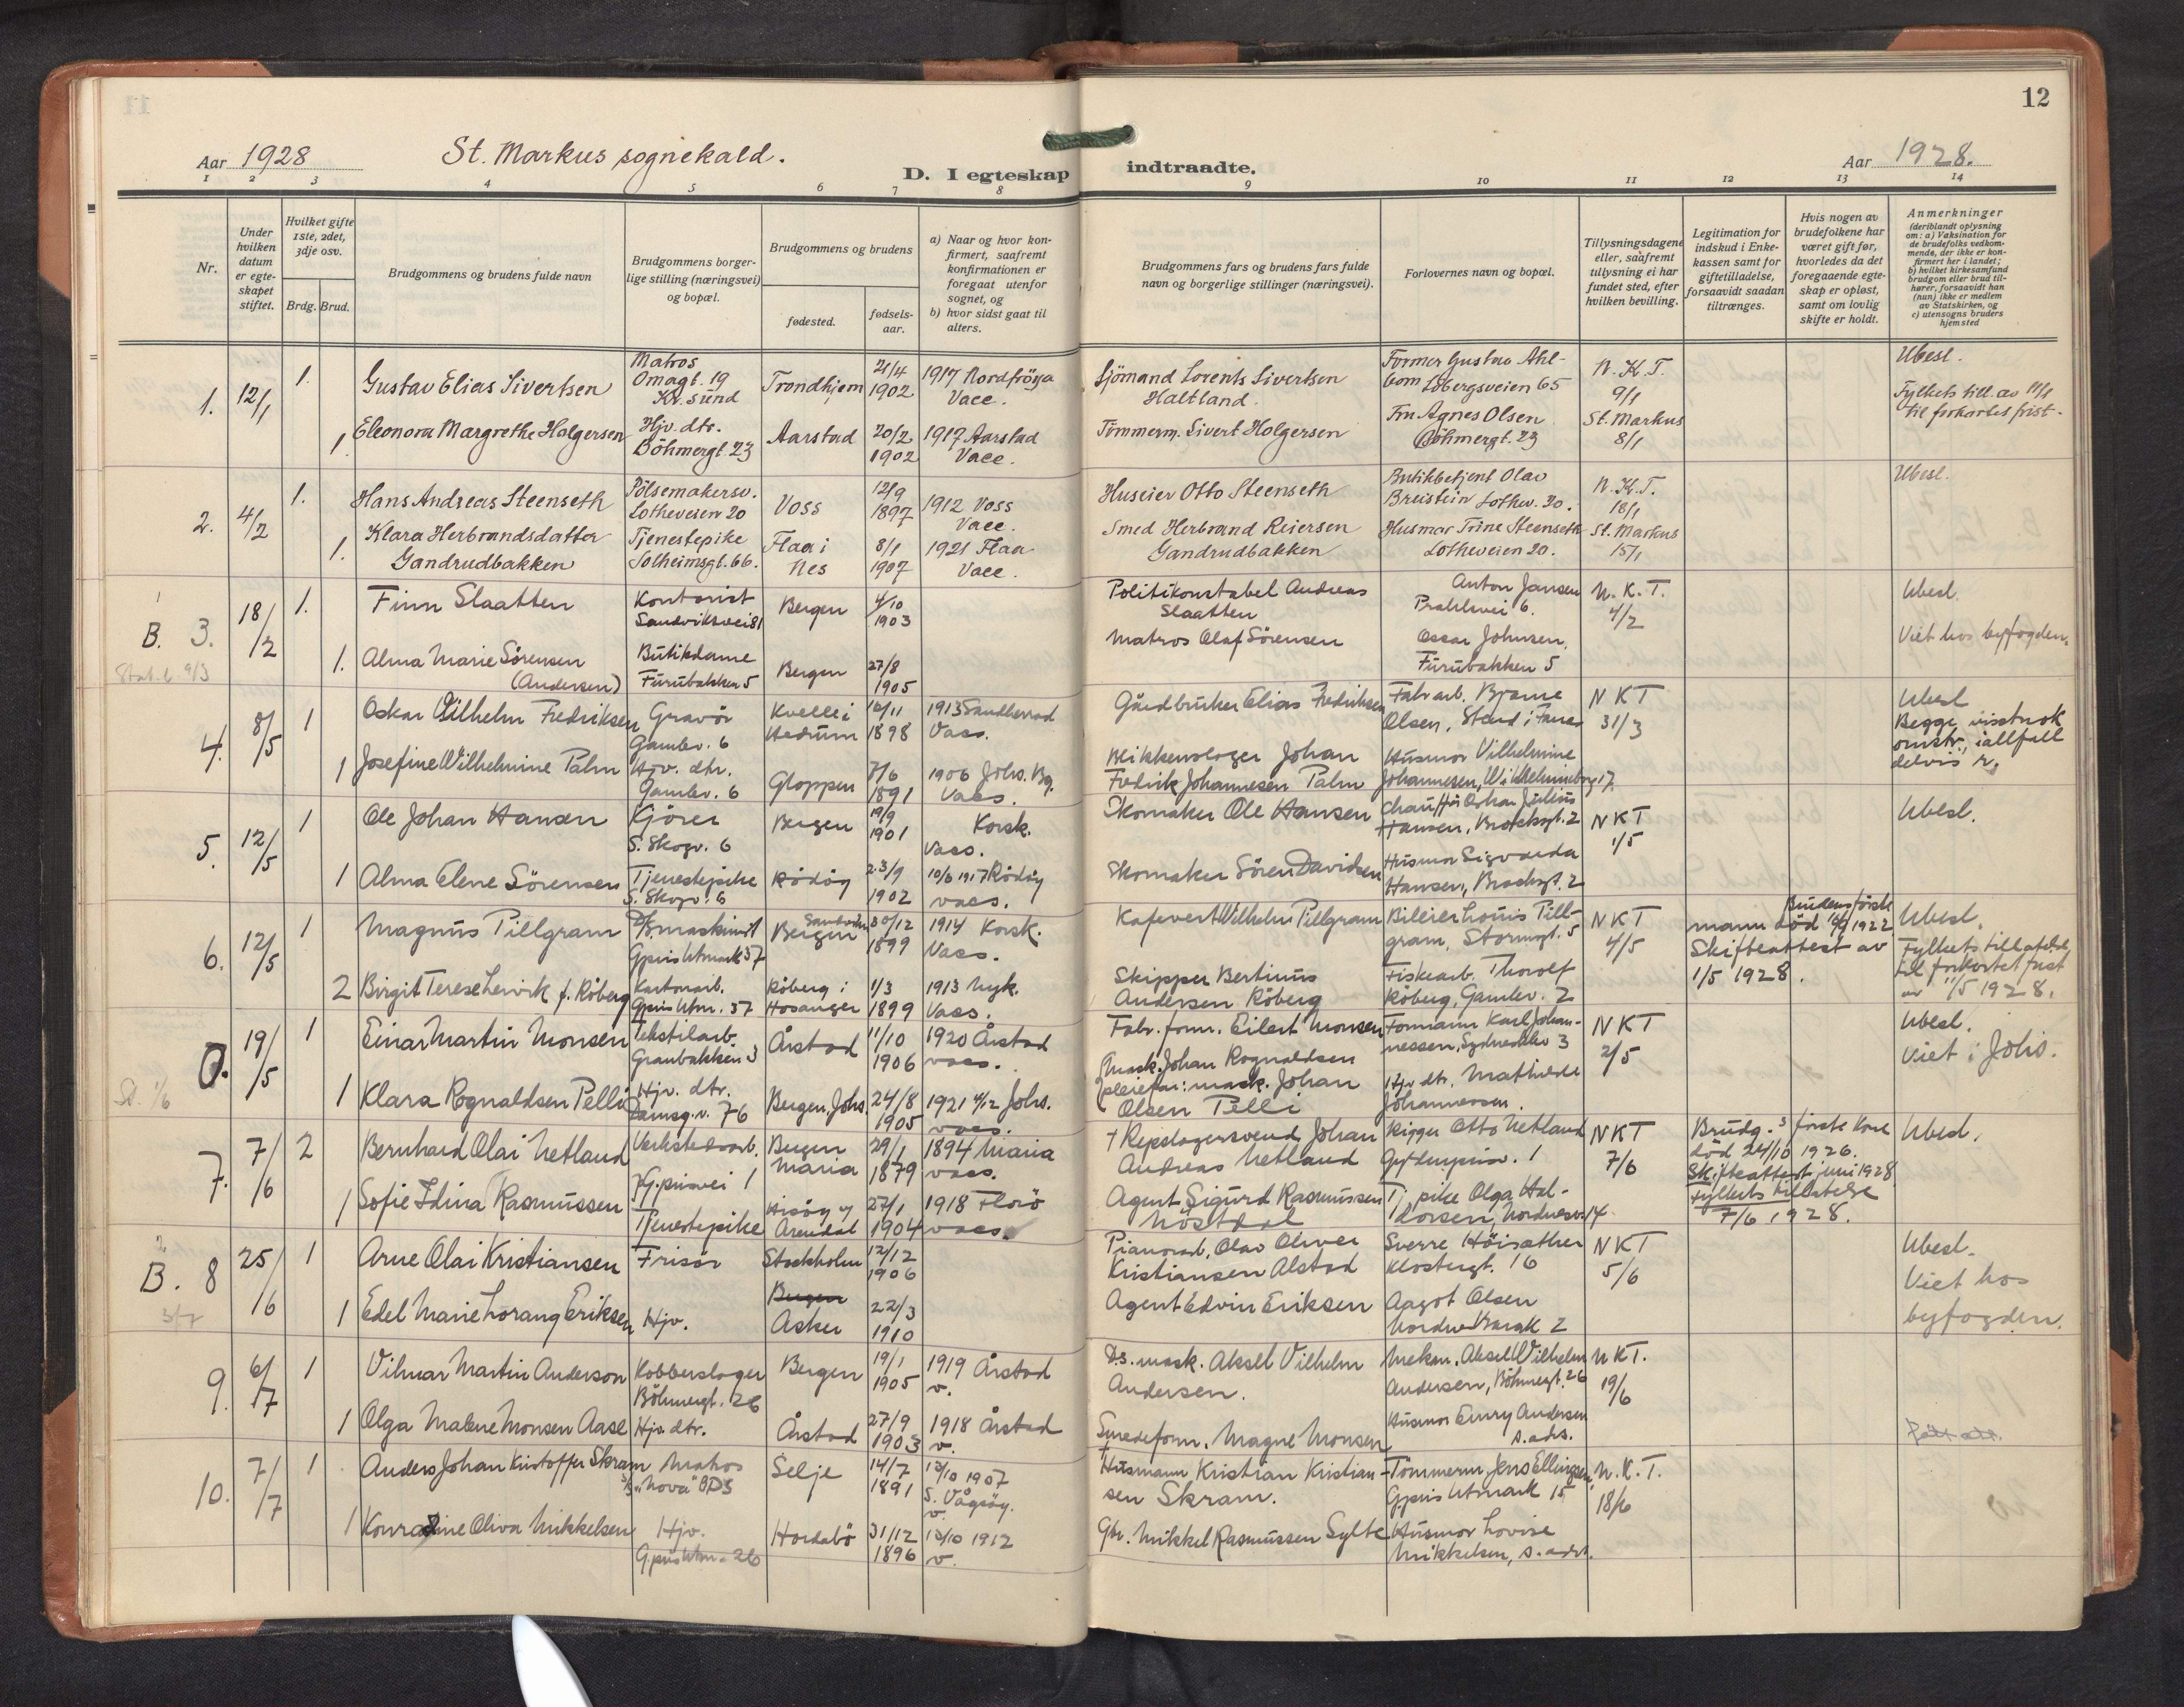 12
Aar 1928
St. Markus sognekald.
D. I egteskap
indtraadte.
Aar 1928.
1 2 3 4 5 6 7 8 9 10 11 12 13 14
Nr.
Under hvilken datum er egteskapet stiftet.
Hvilket gifte 1ste, 2det, 3dje osv.
Brdg. Brud.
Brudgommens og brudens fulde navn
Brudgommens borgerlige stilling (næringsvei) og bopæl.
Brudgommens og brudens
fødested.
fødselsaar.
a) Naar og hvor konfirmert, saafremt konfirmationen er foregaat utenfor sognet, og
b) hvor sidst gaat til alters.
Brudgommens fars og brudens fars fulde navn og borgerlige stillinger (næringsvei).
Forlovernes navn og bopæl.
Tillysningsdagene eller, saafremt tillysning ei har fundet sted, efter hvilken bevilling.
Legitimation for indskud i Enkekassen samt for giftetilladelse, forsaavidt saadan tiltrænges.
Hvis nogen av brudefolkene har været gift før, hvorledes da det foregaaende egteskap er opløst, samt om lovlig skifte er holdt.
Anmerkninger
(deriblandt oplysning om: a) Vaksination for de brudefolks vedkommende, der ikke er konfirmert her i landet;
b) hvilket kirkesamfund brudgom eller brud tilhører, forsaavidt han (hun) ikke er medlem av Statskirken, og
c) utensogns bruders hjemsted
1. 12/1 1. Gustav Elias Sivertsen Matros Omagt. 19 Kr.sund Trondhjem 21/4 1902 1917 Nordfröya Vacc. Sjömand Lorents Sivertsen Haltland. Former Gustav Ahlbom Lobergsveien 65 N. K. T. 9/1 Ubesl.
Fylkets till. av 11/1 til forkortet frist.
1. Eleonora Margrethe Holgersen Hjv. dtr. Böhmergt. 23 Aarstad 20/2 1902 1917 Aarstad Vacc. Tömmerm. Sivert Holgersen Fru Agnes Olsen Böhmergt. 23 St. Markus 8/1
2. 4/2 1. Hans Andreas Steenseth Pölsemakersv. Lotheveien 20 Voss 12/9 1897 1912 Voss Vacc. Huseier Otto Steenseth Butikbetjent Olav Breistein Lothev. 30. N. K. T. 18/1 Ubesl.
1. Klara Herbrandsdatter Gandrudbakken Tjenestepike Solheimsgt. 66. Flaa i Nes 8/1 1907 1921 Flaa Vacc. Smed Herbrand Reiersen Gandrudbakken Husmor Trine Steenseth Lotheveien 20. St. Markus 15/1
B. 3. 18/2 1. Finn Slaatten Kontorist Sandviksvei 81 Bergen 4/10 1903 Politikonstabel Andreas Slaatten Anton Jansen Prahlsvei 6. N. K. T. 4/2 Ubesl.
Viet hos byfogden.
1. Alma Marie Sörensen (Andersen) Butikdame Furubakken 5 Bergen 27/8 1905 Matros Olaf Sörensen Oscar Johnsen, Furubakken 5
4. 8/5 1 Oskar Wilhelm Fredriksen Gravör Gamlev. 6 Kvelle i Hedrum 10/11 1898 1913 Sandherred Vacc. Gårdbruker Elias Fredriksen Fabr.arb. Bjarne Olsen, N K T 31/3 Ubesl
Begge visstnok omstr., iallfall delvis
1 Josefine Wilhelmine Palm Hjv. dtr. Gamlev. 6 Gloppen 7/6 1891 1906 Johs. Bg. Vacc. Blikkenslager Johan Fredrik Johannesen Palm Husmor Vilhelmine Johannesen,
5. 12/5 1 Ole Johan Hansen Kjörer S. Skogv. 6 Bergen 19/9 1901 Korsk. Vacc. Skomaker Ole Hansen Chauffør Johan Julius Hansen, N K T 1/5 Ubesl.
1 Alma Elene Sörensen Tjenestepike S. Skogv. 6 Rödöy 23/9 1902 10/6 1917 Rödöy vacc. Skomaker Sören Davidsen Husmor Sigvarda Hansen,
6. 12/5 1 Magnus Pillgram D/S. maskinist Gpris Utmark 37 Bergen Sandviken 30/12 1899 1914 Korsk. Vacc. Kafevert Wilhelm Pillgram Bileier Louis Pillgram, Stormgt. 5 N K T 4/5 Brudens förste mann död 1922. Skifteattest av 1/5 1928. Ubesl.
Fylkets tillatelse til forkortet frist av 11/5 1928.
2 Birgit Terese Lervik f. Röberg Kartonarb. Gpris Utm. 37 Röberg i Hosanger 1/3 1899 1913 Nyk. Vacc. Skipper Bertinius Andersen Röberg Fiskearb. Thorolf Röberg, Gamlev. 2
0. 19/5 1 Einar Martin Monsen Tekstilarb. Graubakken 3 Årstad 11/10 1906 1920 Årstad vacc. Fabr. form. Eilert Monsen Formann Karl Johannessen, N K T 2/5 Ubesl.
Viet i Johs.
1 Klara Rognaldsen Pelli Hjv. dtr. Damsg.v. 76 Bergen, Johs. 24/8 1905 1921 4/12 Johs. vacc. Mask. Johan Rognaldsen pleiefar: mask. Johan Olsen Pelli Hjv. dtr. Mathilde Johannessen.
7. 7/6 2 Bernhard Olai Netland Verkstedsarb. Bergen Maria 29/1 1879 1894 Maria vacc. † Repslagersvend Johan Andreas Netland Rigger Otto Netland N K T 7/6 Brudg.s förste kone död 24/10 1926. Skifteattest juni 1928 Fylkets tillatelse 7/6 1928. Ubesl.
1 Sofie Edina Rasmussen Tjenestepike Hisöy v/ Arendal 27/1 1904 1918 Florö vacc. Agent Sigurd Rasmussen Nöstdal Tj.pike Olga Haldorsen,
B. 8 25/6 1 Arne Olai Kristiansen Frisör Stockholm 12/12 1906 Pianoarb. Olav Oliver Kristiansen Alstad Sverre Höisæther Klostergt. 16 N K T 5/6 Ubesl.
Viet hos byfogden.
1 Edel Marie Lorang Eriksen Hjv. Bergen Asker 22/3 1910 Agent Edvin Eriksen Aagot Olsen
9. 6/7 1 Vilmar Martin Anderson Kobberslager Böhmergt. 26 Bergen 19/1 1905 1919 Årstad v. D.s. mask. Aksel Vilhelm Andersen. Mekan. Aksel Wilhelm Andersen, Böhmergt. 26 N K T. 19/6
1 Olga Malene Monsen Aase Hjv. dtr. Årstad 27/9 1903 1918 Årstad v. Smedeform. Magne Monsen Husmor Emry Andersen s. adrs.
10. 7/7 1 Anders Johan Kristoffer Skram Matros D/S "Nova" BDS Selje 14/7 1891 13/10 1907 S. Vågsöy. v. † Husmann Kristian Kristiansen Skram. Tömmerm. Jens Ellingsen, Gpris Utmark 15 N. K. T. 18/6
1 Konradine Oliva Mikkelsen Hjv. Gpris Utm. 26 Hordabö 31/12 1896 13/10 1912 v. Gbr. Mikkel Rasmussen Sylte Husmor Lovise Mikkelsen, s. adr.